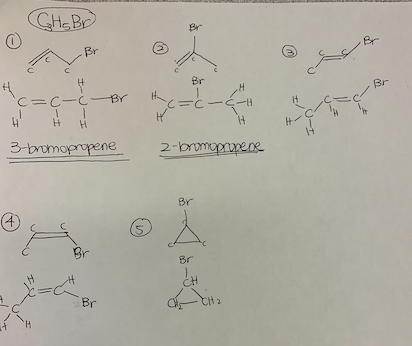 C3H5Br
① ② ③
Br Br Br
C C C C C C C
H H H Br H H Br
C=C-C-Br C=C-C-H C=C
H H H H H H C H H
H H
3-bromopropene 2-bromopropene
④ ⑤
Br
C C C
C Br C C
H H Br
C=C Br CH
C CH2 CH2
H H H